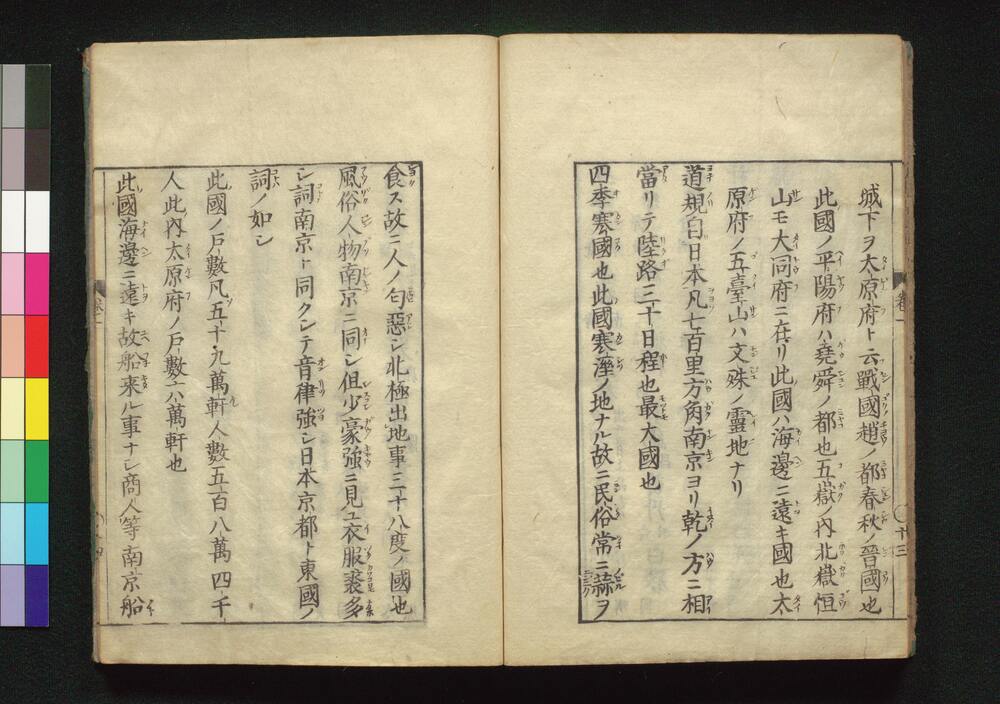 城下ヲ太原府ト云戰國趙ノ都春秋ノ晉國也
此國ノ平陽府ハ堯舜ノ都也五嶽ノ内北嶽恒
山モ大同府ニ在リ此國ハ海邊ニ遠キ國也太
原府ノ五臺山ハ文殊ノ靈地ナリ
道規自日本凡七百里方角南京ヨリ乾ノ方ニ相
當リテ陸路三十日程也最大國也
四季寒國也此國寒溼ノ地ナル故ニ民俗常ニ蒜ヲ
食ス故ニ人ノ匂惡シ北極出地事三十八度ノ國也
風俗人物南京ニ同シ但少豪強ニ見ユ衣服裘多
シ詞南京ト同クシテ音律強シ日本京都ト東國ノ
詞ノ如シ
此國ノ戸數凡五十九萬軒人數五百八萬四千
人此内太原府ノ戸數六萬軒也
此國海邊ニ遠キ故船来ル事ナシ商人等南京船
卷一
十三